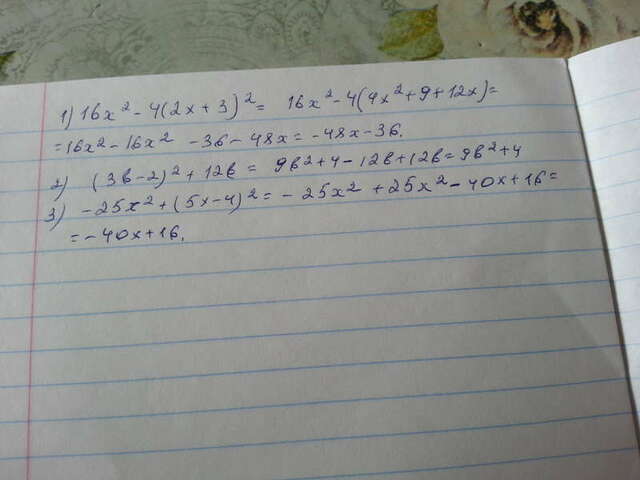 1) 16x² - 4(2x+3)² = 16x² - 4(4x²+9+12x) =
= 16x² - 16x² - 36 - 48x = -48x - 36.
2) (3в-2)² + 12в = 9в²+4-12в+12в = 9в²+4
3) -25x² + (5x-4)² = -25x² + 25x² - 40x + 16 =
= -40x + 16.